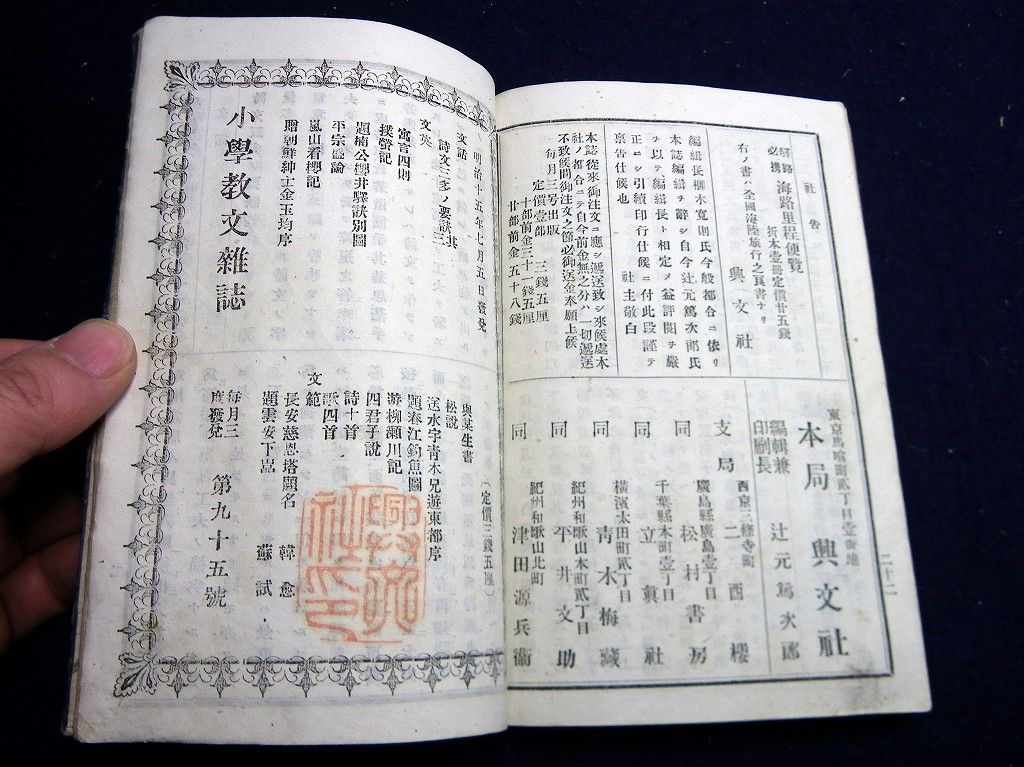 社告
驛路必携 海路里程便覽 折本壹冊定價廿五錢
右ノ書ハ全國海陸旅行之頁書ナリ
興文社
編緝長柳本寛則氏今般都合ニ依リ
本誌編緝ヲ辭シ自今辻元篤次郎氏
ヲ以テ編緝長ト相定メ益評閲ヲ嚴
正ニシ引續印行仕候ニ付此段謹テ
禀告仕候也
社主敬白
本誌從來御注文ニ應シ遞送致シ來候處本
社ノ都合ニテ自今前金無之分ハ一切遞送
不致候間御注文之節必御送金奉願上候
每月三号出版
定價壹部 三錢五厘
十部前金三十一錢五厘
廿部前金五十八錢
東京馬喰町貳丁目壹番地
本局 興文社
編輯兼印刷長 辻元篤次郎
西京三條寺町
支局 二酉樓
廣島縣廣島壹丁目
同 松村書房
千葉縣本町壹丁目
同 立眞社
橫濱太田町貳丁目
同 靑木梅藏
紀州和歌山本町貳丁目
同 平井文助
紀州和歌山北町
同 津田源兵衞
二十二
明治十五年七月五日發兌
文話
詩文三多ノ要訣其三
文英
寓言四則
撲醫記
題楠公櫻井驛訣別圖
平宗盛論
嵐山看櫻記
贈朝鮮紳士金玉均序
小學教文雜誌
(定價三錢五厘)
與某生書
松説
送水宇靑木兄遊東都序
題春江釣魚圖
游柳瀬川記
四君子説
詩十首
歌四首
文範
長安慈恩塔題名 韓愈
題雲安下嵓 蘇試
每月三度發兌
第九十五號
興文社之印